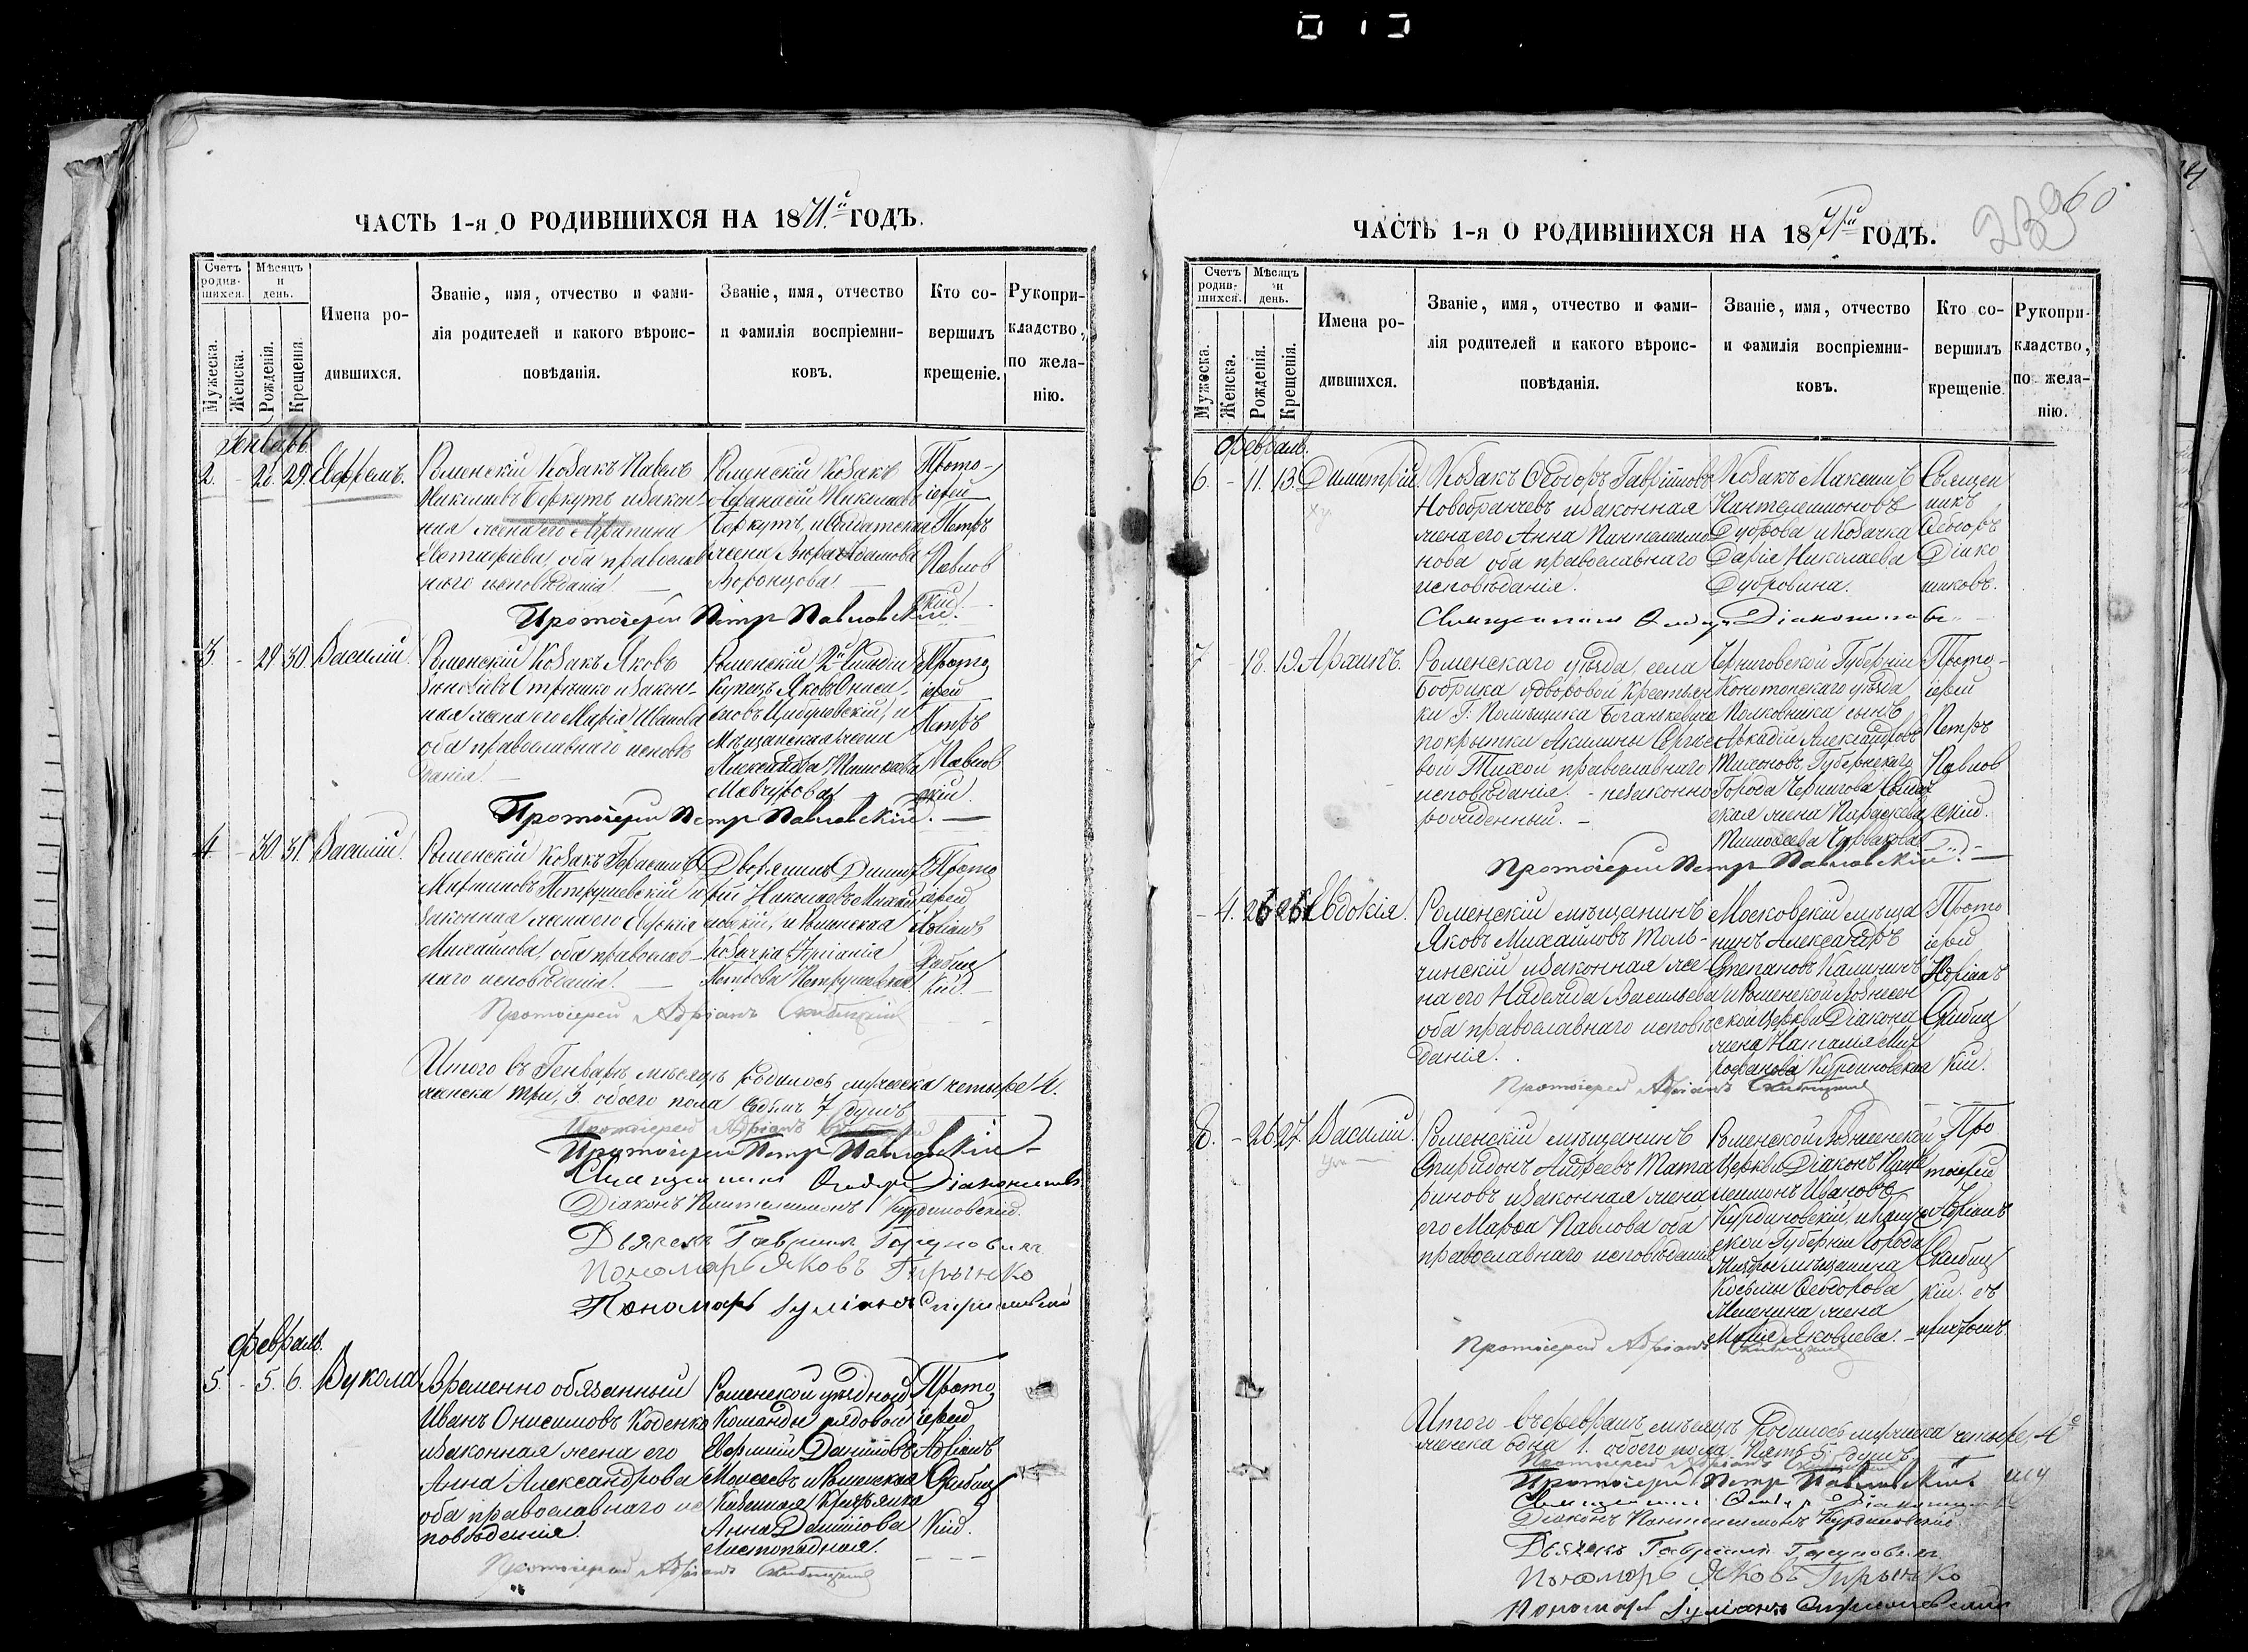 ЧАСТЬ 1-я О РОДИВШИХСЯ НА 1871й ГОДЪ.
Счетъ родив-шихся.
Мѣсяцъ и день.
Мужеска.
Женска.
Рожденія.
Крещенія.
Имена ро-дившихся.
Званіе, имя, отчество и фами-
лія родителей и какого вѣроис-
повѣданія.
Званіе, имя, отчество
и фамилія воспріемни-
ковъ.
Кто со-
вершилъ
крещеніе.
Рукопри-
кладство,
по жела-
нію.
Генварь.
2. - 28. 29. Ефремъ.
Роменскій Козакъ Павелъ
Николаевъ Беркутъ и закон-
ная жена его Агрипина
оба православ
наго исповѣданія.
Роменскій Козакъ
Афанасій Николаевъ
Беркутъ, и Солдатская
жена
Воронцова.
Прото-
іерей
Петръ
Павлов
скій.
Протоіерей Петръ Павловскій.
3. - 29 30. Василій.
Роменскій Козакъ Яковъ
Стрѣшко и закон-
ная жена его Марія Иванова
оба православнаго исповѣ
данія.
Роменскій 2й Гильдіи
Купецъ Яковъ Ониси-
мовъ Цибулевскій, и
Мѣщанская жена
Прото
іерей
Петръ
Павлов
скій.
Протоіерей Петръ Павловскій.
4. - 30 31. Василій.
Роменскій Козакъ Герасимъ
Мартиновъ Петрушевскій и
законная жена его
Михайлова, оба православ-
наго исповѣданія.
Дворянинъ Димит-
рій Николаевъ Михай
ловскій, и Роменская
Козачка
Петрова Петрушевская.
Прото
іерей
Адріанъ
Скибиц
кій.
Протоіерей Адріанъ Скибицкій
Итого въ Генварѣ мѣсяцѣ родилось мужеска четыре 4.
женска три, 3. обоего пола седмь 7 душъ
Протоіерей Адріанъ Скибицкій
Протоіерей Петръ Павловскій
Священникъ Ѳеодоръ Діаконниковъ
Діаконъ Пантелеимонъ Курдиновскій.
Дьячекъ Гавріилъ
Пономарь Яковъ
Пономарь Іуліанъ
Февраль.
5. - 5. 6. Вукола
Временно обязанный
Иванъ Онисимовъ Коденко
и законная жена его
Анна Александрова
оба православнаго ис
повѣданія.
Роменской уѣздной
Команды рядовой
Евфимій Даніиловъ
Моисеевъ и Роменская
Казенная Крестьянка
Анна Даніилова
Листопадная.
Прото
іерей
Адріанъ
Скибиц
кій.
Протоіерей Адріанъ Скибицкій
ЧАСТЬ 1-я О РОДИВШИХСЯ НА 1871й ГОДЪ.
60
Счетъ родив-шихся.
Мѣсяцъ и день.
Мужеска.
Женска.
Рожденія.
Крещенія.
Имена ро-дившихся.
Званіе, имя, отчество и фами-
лія родителей и какого вѣроис-
повѣданія.
Званіе, имя, отчество
и фамилія воспріемни-
ковъ.
Кто со-
вершилъ
крещеніе
Рукопри-
кладство,
по жела-
нію.
Февраль.
6. - 11. 13. Димитрій.
Козакъ Ѳеодоръ Гавріиловъ
Новобранчевъ и законная
жена его Анна Пантелеимо
нова оба православнаго
исповѣданія.
Козакъ Максимъ
Пантелеимоновъ
Дуброва и Козачка
Дарія Николаева
Дубровина.
Священ
никъ
Ѳеодоръ
Діако
никовъ.
Священникъ Ѳеодоръ Діаконниковъ
7 - 18. 19. Архипъ.
Роменскаго уѣзда, села
Бобрика дворовой крестьян
ки Г. Помѣщика Богашкевича
покрытки Акилины Сергѣе
вой Тихой православнаго
исповѣданія. - незаконно
рожденный.
Черниговской Губерніи
Конотопскаго уѣзда
Полковника сынъ
Аркадій Александровъ
Тихоновъ, Губернскаго
Города Чернигова
ская жена Параскева
Тимоѳеева
Прото-
іерей
Петръ
Павлов
скій.
Протоіерей Петръ Павловскій.
- 4. 26 26 Евдокія.
Роменскій мѣщанинъ
Яковъ Михайловъ Толь-
чинскій и законная же-
на его Надежда Васильева
оба православнаго исповѣ
данія.
Московскій мѣща
нинъ Александръ
Степановъ Калининъ
и Роменской Вознесен
ской Церкви Діакона
жена Наталія Мит
рофанова Курдиновская
Прото
іерей
Адріанъ
Скибиц
кій.
Протоіерей Адріанъ Скибицкій
8. - 26. 27. Василій.
Роменскій мѣщанинъ
Спиридонъ Андреевъ Тата
риновъ и законная жена
его Марѳа Павлова оба
православнаго исповѣданія
Роменской Вознесенской
Церкви Діаконъ Панте
леимонъ Ивановъ
Курдиновскій, и
ской Губерніи Города
мѣщанина
Космы Ѳеодорова
жена
Марія Яковлева.
Про
тоіерей
Адріанъ
Скибиц
кій. съ
причтомъ.
Протоіерей Адріанъ Скибицкій
Итого въ февралѣ мѣсяцѣ родилось мужеска четыре, 4.
женска одна 1. обоего пола пять 5 душъ.
Протоіерей Адріанъ Скибицкій
Протоіерей Петръ Павловскій
Священникъ Ѳеодоръ Діаконниковъ
Діаконъ Пантелеимонъ Курдиновскій
Дьячекъ Гавріилъ
Пономарь Яковъ
Пономарь Іуліанъ